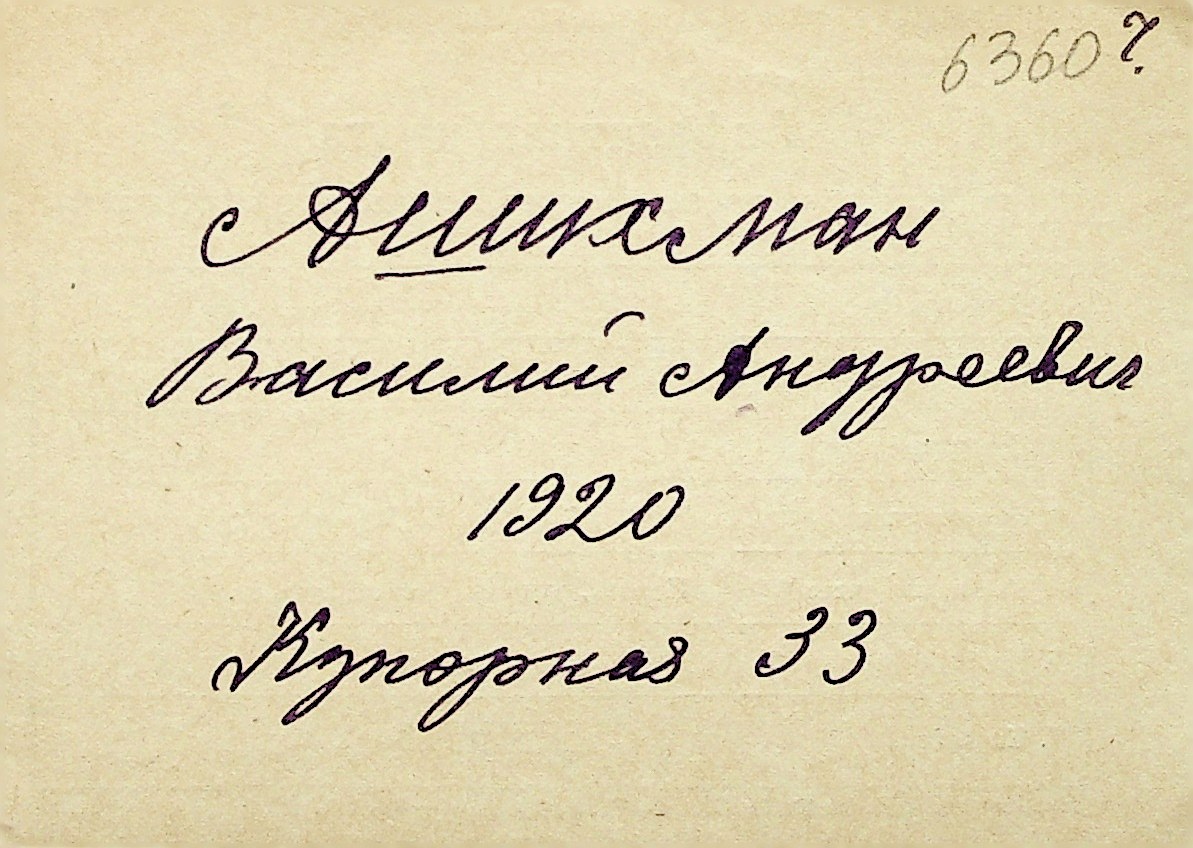 6360?
Ашихман
Василий Андреевич
1920
Купорная 33